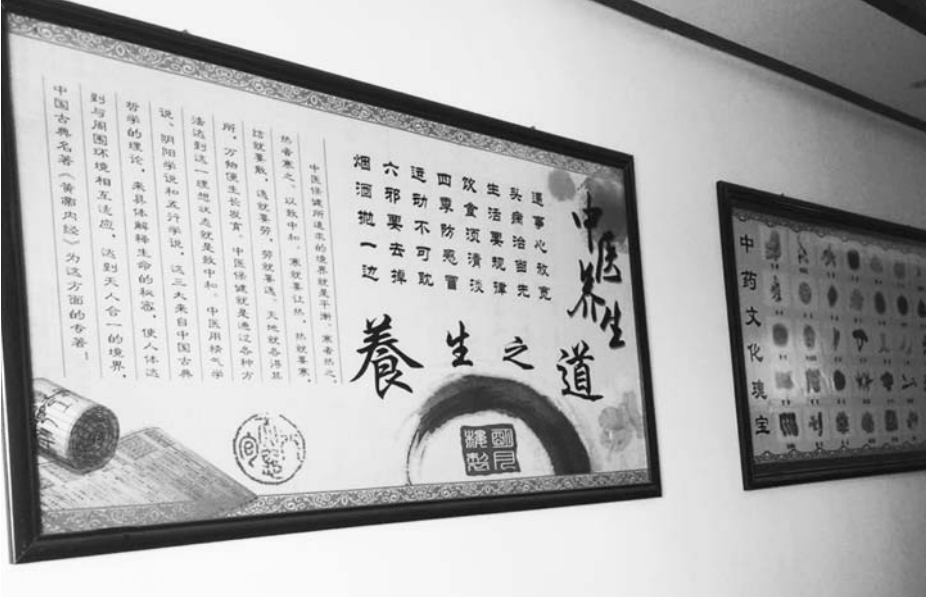 中医养生
遇事心放宽
头痛治当先
生活要规律
饮食须清淡
四季防感冒
运动不可耽
六邪要去掉
烟酒抛一边
養生之道
中医保健所追求的境界就是平衡。寒者热之，
热者寒之，以致中和。寒就要让热，热就要寒，
结就要散，逸就要劳，劳就要逸。天地就各得其
所，万物便生长发育。中医保健就是通过各种方
法达到这一理想状态就是致中和。中医用精气学
说、阴阳学说和五行学说，这三大来自中国古典
哲学的理论，来具体解释生命的秘密，使人体达
到与周围环境相互适应，达到天人合一的境界。
中国古典名著《黄帝内经》为这方面的专著！
中药文化瑰宝